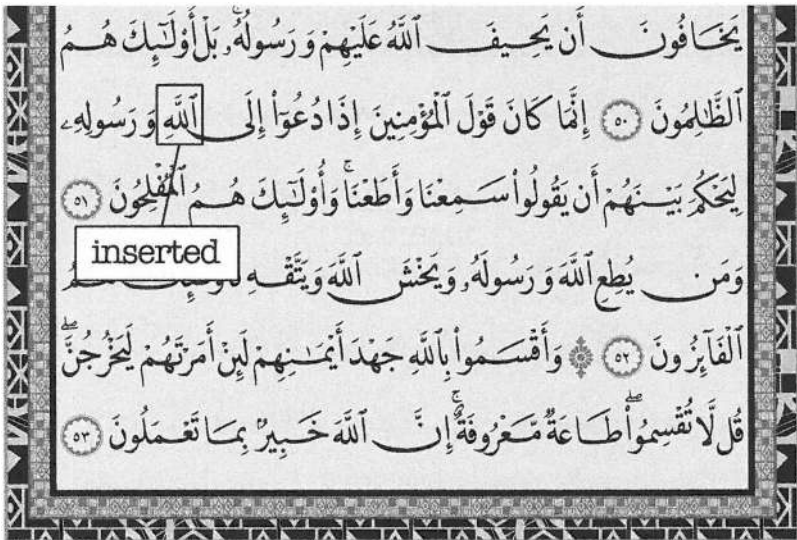 يَخَافُونَ أَن يَحِيفَ ٱللَّهُ عَلَيْهِمْ وَرَسُولُهُۥۚ بَلْ أُوْلَٰٓئِكَ هُمُ
ٱلظَّٰلِمُونَ ٥٠ إِنَّمَا كَانَ قَوْلَ ٱلْمُؤْمِنِينَ إِذَا دُعُوٓاْ إِلَى ٱللَّهِ وَرَسُولِهِۦ
لِيَحْكُمَ بَيْنَهُمْ أَن يَقُولُواْ سَمِعْنَا وَأَطَعْنَاۚ وَأُوْلَٰٓئِكَ هُمُ ٱلْمُفْلِحُونَ ٥١
inserted
وَمَن يُطِعِ ٱللَّهَ وَرَسُولَهُۥ وَيَخْشَ ٱللَّهَ وَيَتَّقْهِ
ٱلْفَآئِزُونَ ٥٢ ۞ وَأَقْسَمُواْ بِٱللَّهِ جَهْدَ أَيْمَٰنِهِمْ لَئِنْ أَمَرْتَهُمْ لَيَخْرُجُنَّۖ
قُل لَّا تُقْسِمُواْۖ طَاعَةٌ مَّعْرُوفَةٌۚ إِنَّ ٱللَّهَ خَبِيرٌۢ بِمَا تَعْمَلُونَ ٥٣